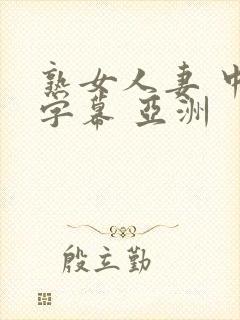 熟女人妻 中
字幕 亞洲
殷立勤